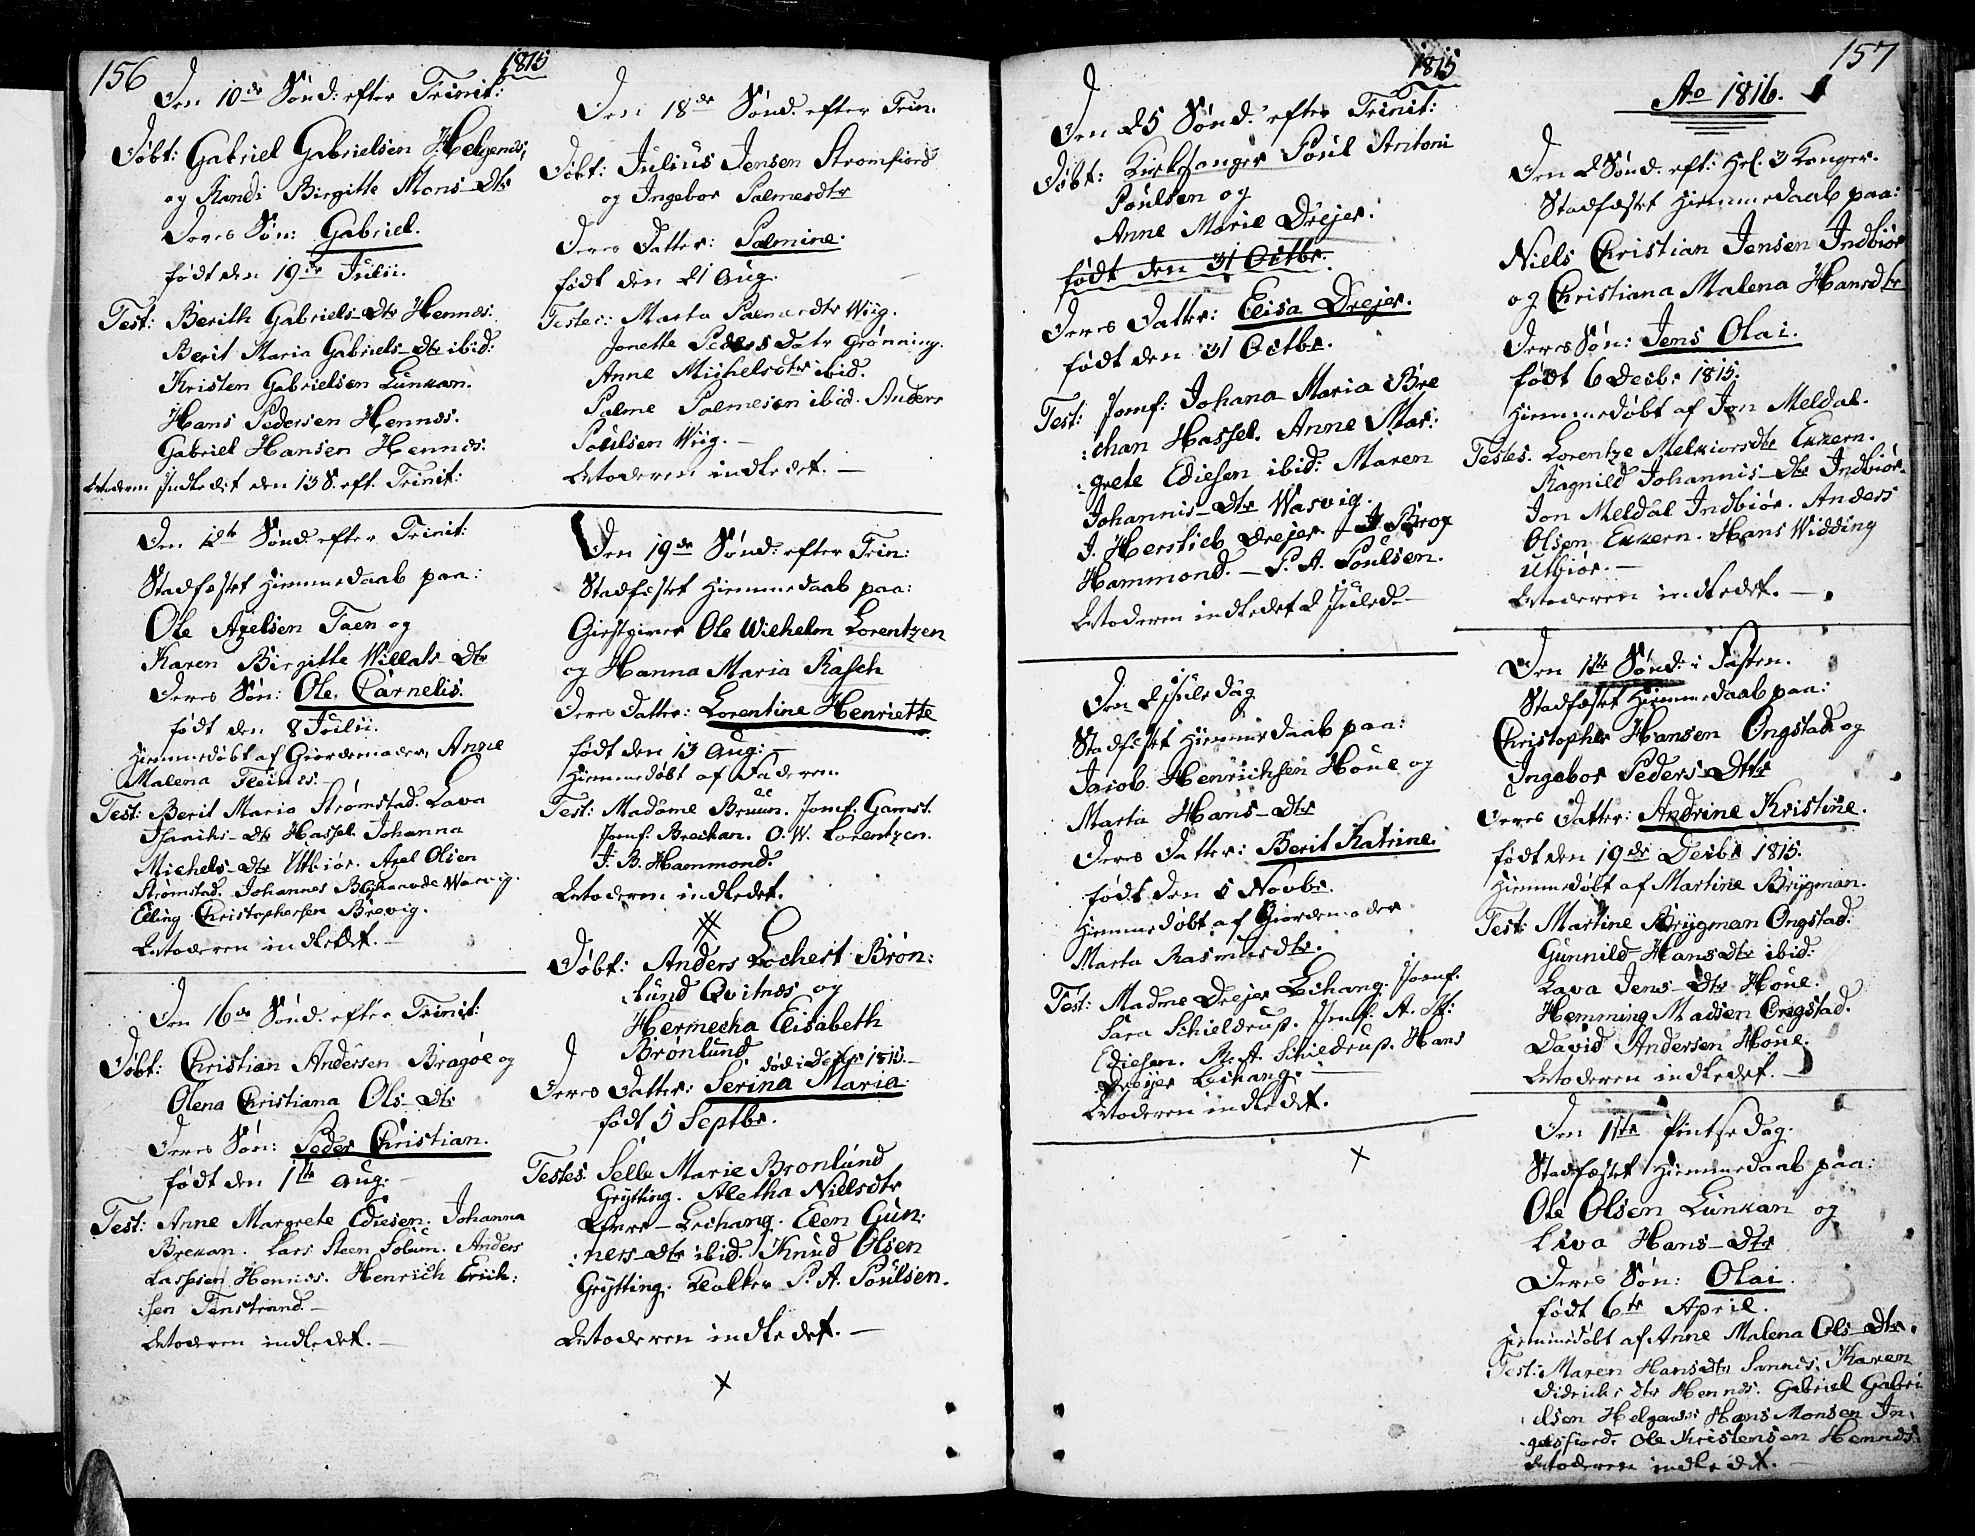 156
1815
Den 10de Sønd: efter Trinit:
Døbt: Gabriel Gabrielsen Helgenes,
og Randi Birgitte Mons-Dtr
Deres Søn: Gabriel.
født den 19de Julii.
Test: Berith Gabriels-Dtr Hennes.
Berit Maria Gabriels-Dtr ibid:
Kristen Gabrielsen Lunkan.
Hans Pedersen Hennes.
Gabriel Hansen Hennes:
Moderen Indledet den 13 S. eft. Trinit:
Den 12te Sønd: efter Trinit:
Stadfæstet Hiemmedaab paa:
Ole Axelsen Taen og
Karen Birgitte Willats-Dtr
Deres Søn: Ole Carnelis.
født den 8 Julii:
Hiemmedøbt af Giordemoder, Anne
Malena Fleines.
Test: Berit Maria Strømstad. Lava
Henriks-Dtr Hassel. Johanna
Michels-Dtr Utbiør. Axel Olsen
Strømstad. Johannes Wasvig.
Elling Christophersen Brevig.
Moderen indledet.-
Den 16de Sønd: efter Trinit:
Døbt: Christian Andersen Bragøe og
Olena Christiana Ols-Dtr
Deres Søn: Peder Christian.
født den 1te Aug:
Test: Anne Margrete Ediesen. Johanna
Brekan. Lars Steen Solum. Anders
Lassesen Hennes. Henrich Erich:
:sen Tenstrand.-
Moderen indledet.-
Den 18de Sønd: efter Trin.
Døbt: Julius Jensen Strømfiord
og Ingebor Palmesdtr
Deres Datter: Palmine.
født den 21 Aug.
Testes: Marta Palmesdtr Wiig.
Jonette Peders Datr Grønning.
Anne Michelsdtr ibid.
Palme Palmesen ibid. Anders
Poulsen Wiig.-
Moderen indledet.-
Den 19de Sønd: efter Trin:
Stadfæstet Hiemmedaab paa:
Giestgiver Ole Wilhelm Lorentzen
og Hanna Maria Rasch
Deres Datter: Lorentine Henriette
født den 13 Aug:
Hiemmedøbt af Faderen.
Test: Madame Bruun. Jomf. Gamst.
Jomf. Brechan. O. W. Lorentzen.
J. B. Hammond.
Moderen indledet.
Døbt: Anders Lochert Brøn:
:lund Qvitnes og
Hermecha Elisabeth
Brønlund. død: 1815.-
Deres Datter: Serina Maria.
født 5 Septbr.
Testes Selle Marie Bronlund
Grytting. Aletha Nielsdtr
Lekang. Elen Gun:
:ners-Dtr ibid. Knud Olsen
Grytting. Klokker P. A. Poulsen.
Moderen indledet.-
1815
Den 25 Sønd. efter Trinit:
Døbt: Kirkesanger Poul Antoni
Poulsen og
Anne Marie Drejer.
født den 31 Octbr.
Deres Datter: Elisa Drejer.
født den 31 Octbr.
Test: Jomf: Johana Maria Bre
:chan Hassel. Anne Mar:
:grete Ediesen ibid: Maren
Johannis-Dtr Wasvig.
J. Herslieb Drejer. J. Brox
Hammond.- P. A. Poulsen.
Moderen indledet 2 Juled.
Den 2 Juledag
Stadfæstet Hiemmedaab paa:
Jacob Henrichsen Houe og
Marta Hans-Dtr
Deres Datter: Berit Katrine.
født den 5 Novbr.
Hiemmedøbt af Giordemoder
Marta Rasmusdtr.
Test: Madme Drejer Lekang. Jomf.
Sara Schieldrup. Jomf. A. M:
Ediesen. R. A. Schieldrup. Hans
Drejer Lekang.
Moderen indledet.
157
Ao 1816.
Den 2 Sønd: eft: Hel. 3 Konger.
Stadfæstet Hiemmedaab paa:
Niels Christian Jensen Indbiør
og Christiana Malena Hansdtr
Deres Søn: Jens Olai.
født 6 Decbr 1815.
Hiemmedøbt af Jon Meldal.
Testes. Lorentze Melkiorsdtr Exkern.
Ragnild Johannis-Dtr Indbiør.
Jon Meldal Indbiør. Anders
Olsen Exkern. Hans Widding
Utbiør.-
Moderen indledet.-
Den 1te Sønd: i Fasten.
Stadfæstet Hiemmedaab paa:
Christopher Hansen Ongstad og
Ingebor Peders-Dtr
Deres Datter: Andrine Kristine.
født den 19de Decbr 1815.
Hiemmedøbt af Martine Brygman.
Test: Martine Brygman Ongstad.
Gunnild Hansdtr ibid:
Lava Jens-Dtr Houe.
Hemming Madsen Ongstad.
David Andersen Houe.
Moderen indledet.-
Den 1ste Pintsedag.
Stadfæstet Hiemmedaab paa:
Ole Olsen Lunkan og
Liva Hans-Dtr
Deres Søn: Olai.
født 6te April.
Hiemmedøbt af Anne Malena Ols-Dtr.
Test: Maren Hansdtr Sannes. Karen
Didrichs Dtr Hennes. Gabriel Gabri
elsen Helgenes. Hans Monsen In.
gelsfiord. Ole Kristensen Hennes
Moderen indledet.-